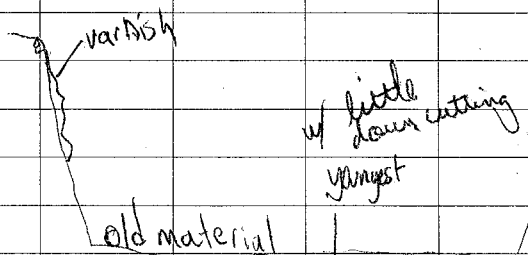 varnish
w/ little
down cutting
yungest
old material